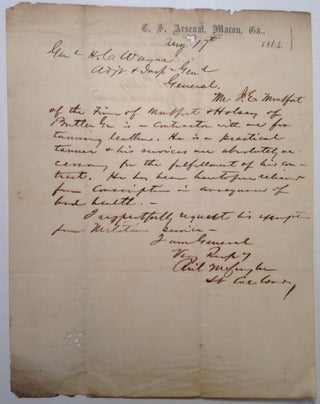 C. S. Arsenal, Macon, Ga.,
Aug 17th 1864.
Genl H. C. Wayne
Adjt & Insp Genl
General,
Mr J. E. Muffat
of the Firm of Muffat & Holsey of
Butler Ga is a Contractor with me for
tanning leather. He is a practical
tanner & his services are absolutely ne-
cessary for the pulfillment of his con-
tract. He has been heretofore relieved
from Conscription in consequence of
bad health. -
I respectfully request his exemption
from Militia service -
I am General
Very Respy
Lt Col Comdg